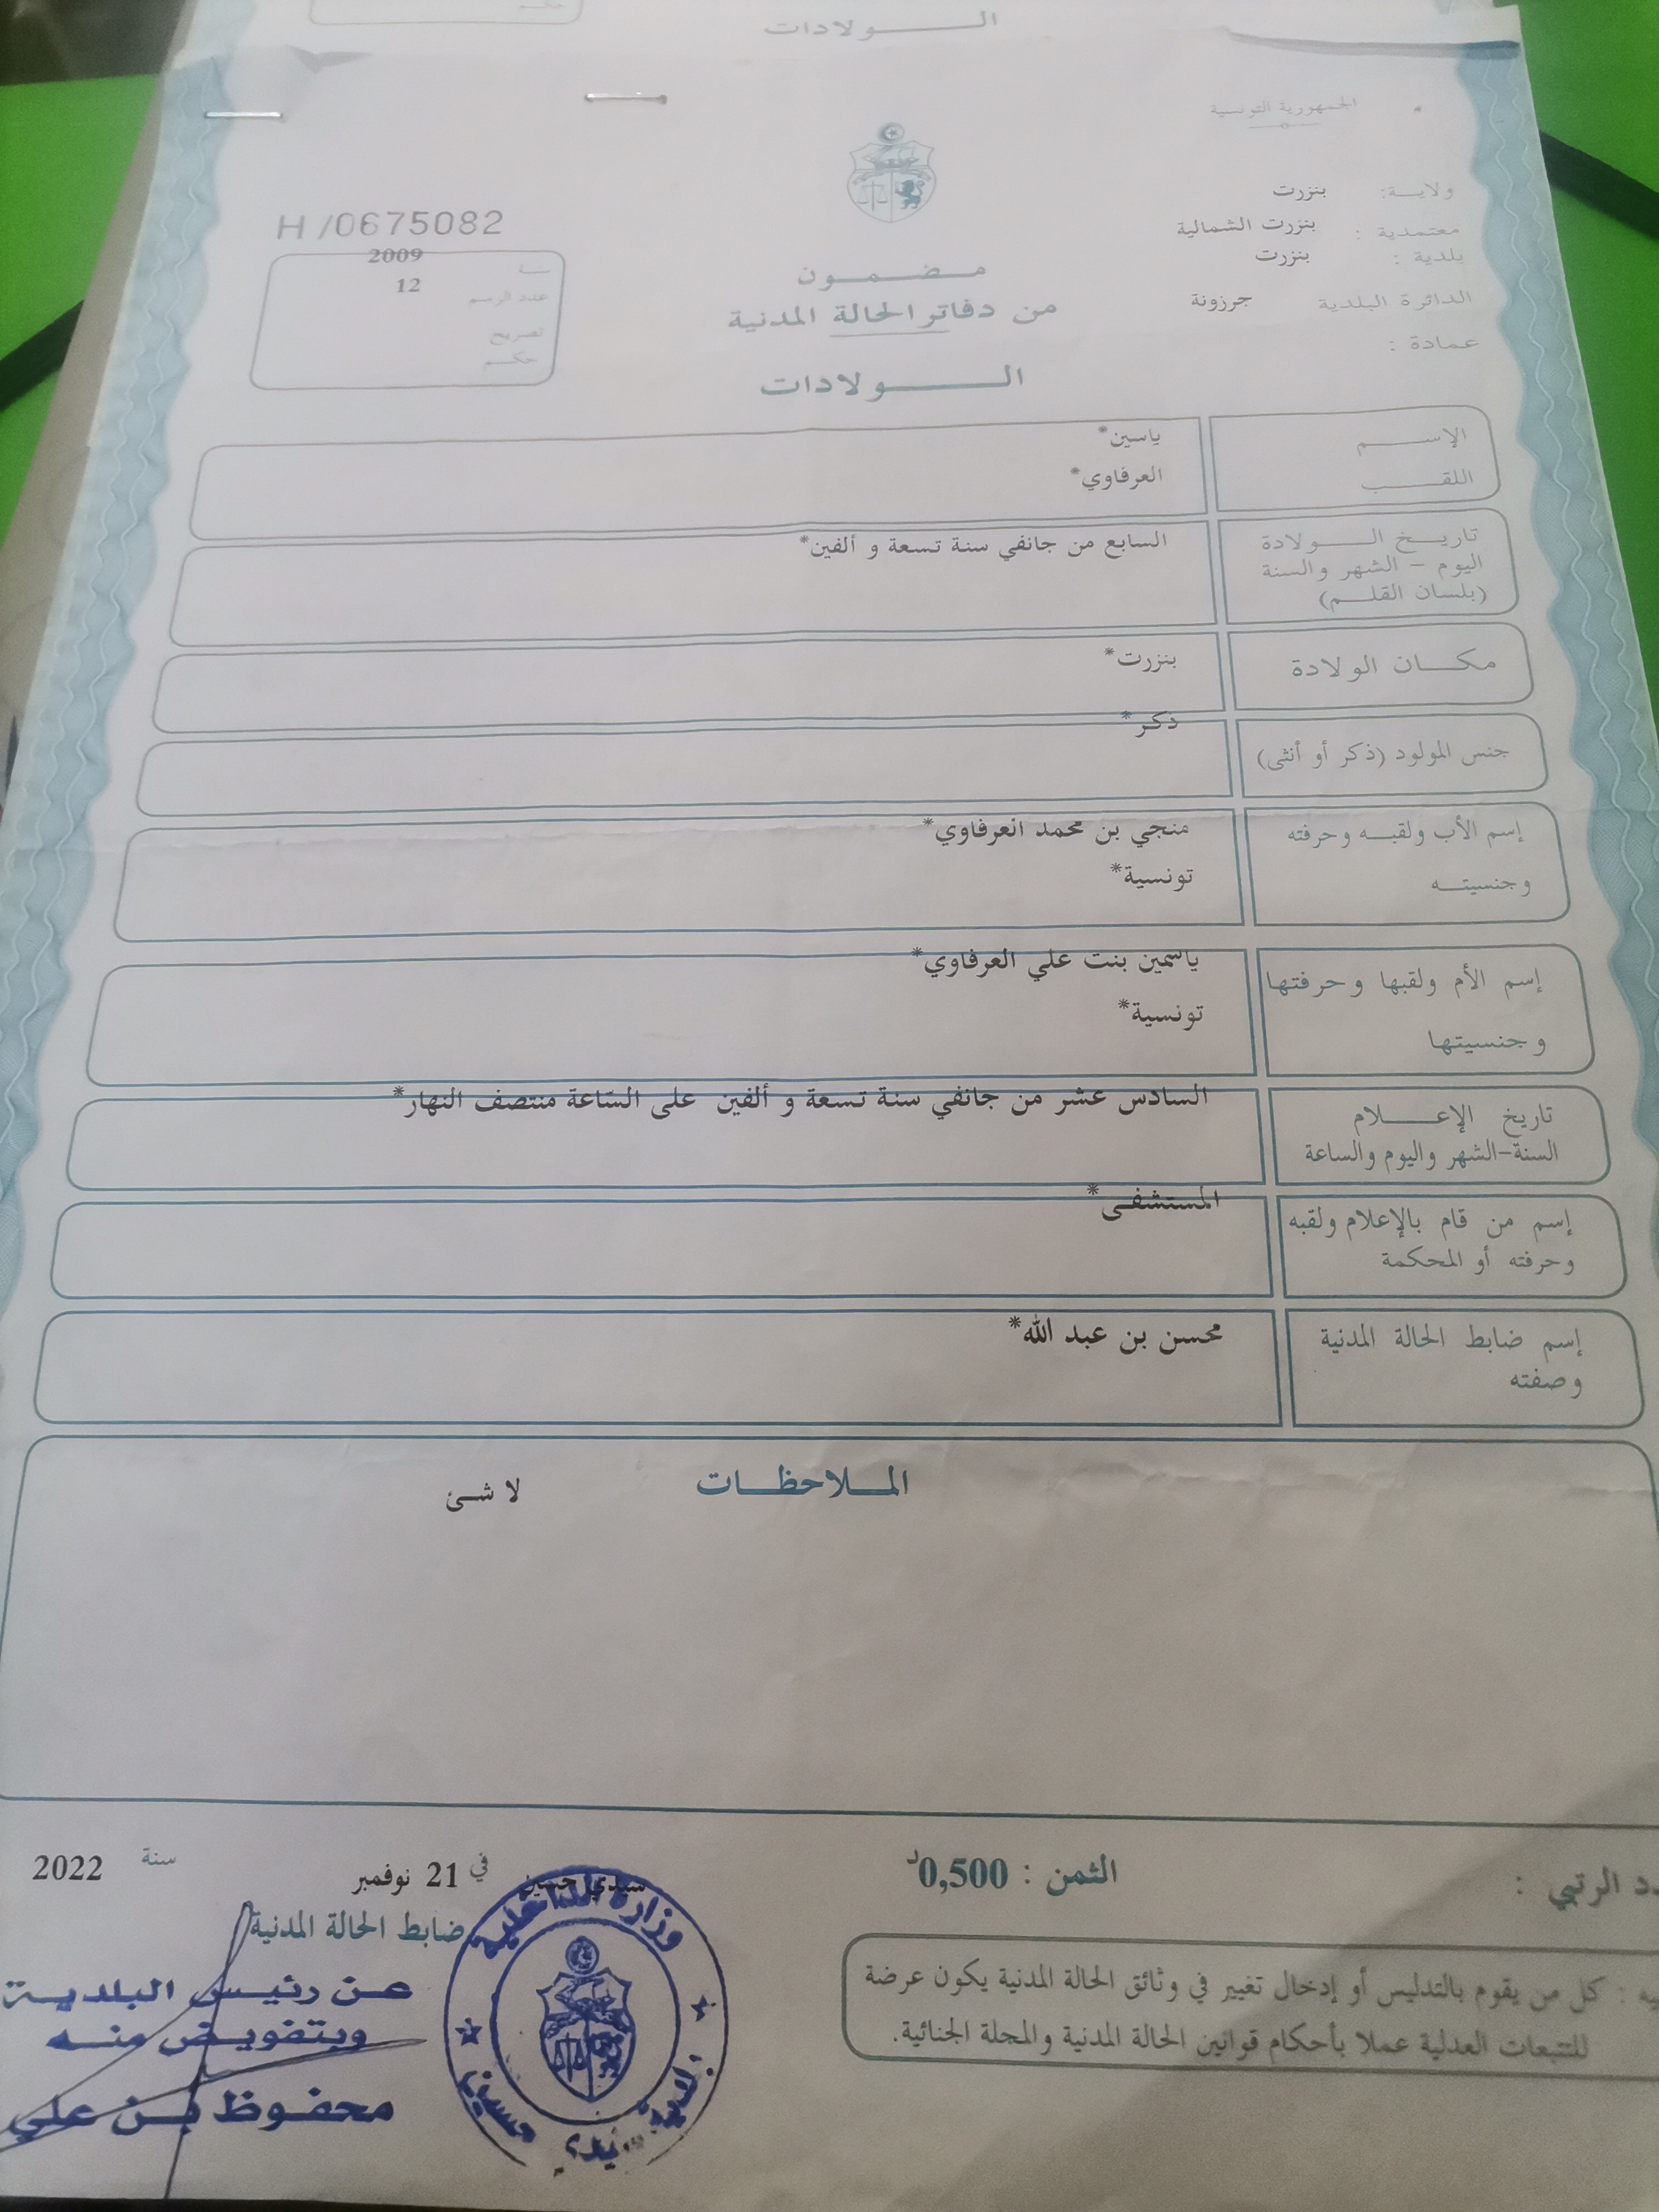 الـولادات
الجمهورية التونسية
ولايـة: بنزرت
معتمدية : بنزرت الشمالية
بلدية : بنزرت
الدائرة البلدية جرزونة
عمادة :
H/0675082
سنة 2009
عدد الرسم 12
تصريح
حكم
مـضـمـون
من دفاتر الحالة المدنية
الـولادات
الإسـم ياسين*
اللقـب العرفاوي*
تاريـخ الـولادة السابع من جانفي سنة تسعة و ألفين*
اليوم - الشهر والسنة
(بلسان القلـم)
مكـان الولادة بنزرت*
جنس المولود (ذكر أو أنثى) ذكر*
إسم الأب ولقبـه وحرفته منجي بن محمد العرفاوي*
وجنسيتـه تونسية*
إسم الأم ولقبها وحرفتها ياسمين بنت علي العرفاوي*
وجنسيتها تونسية*
تاريخ الإعـلام السادس عشر من جانفي سنة تسعة و ألفين على السّاعة منتصف النهار*
السنة-الشهر واليوم والساعة
إسم من قام بالإعلام ولقبه المستشفى*
وحرفته أو المحكمة
إسم ضابط الحالة المدنية محسن بن عبد الله*
وصفته
المـلاحظـات لا شئ
دد الرتبي :
الثمن : 0,500د
سيدي حسين في 21 نوفمبر سنة 2022
ضابط الحالة المدنية
عـن رئيس البلديـة
وبتفويـض منـه
محفـوظ بـن علي
وزارة الداخلية
يه : كل من يقوم بالتدليس أو إدخال تغيير في وثائق الحالة المدنية يكون عرضة
للتتبعات العدلية عملا بأحكام قوانين الحالة المدنية والمجلة الجنائية.